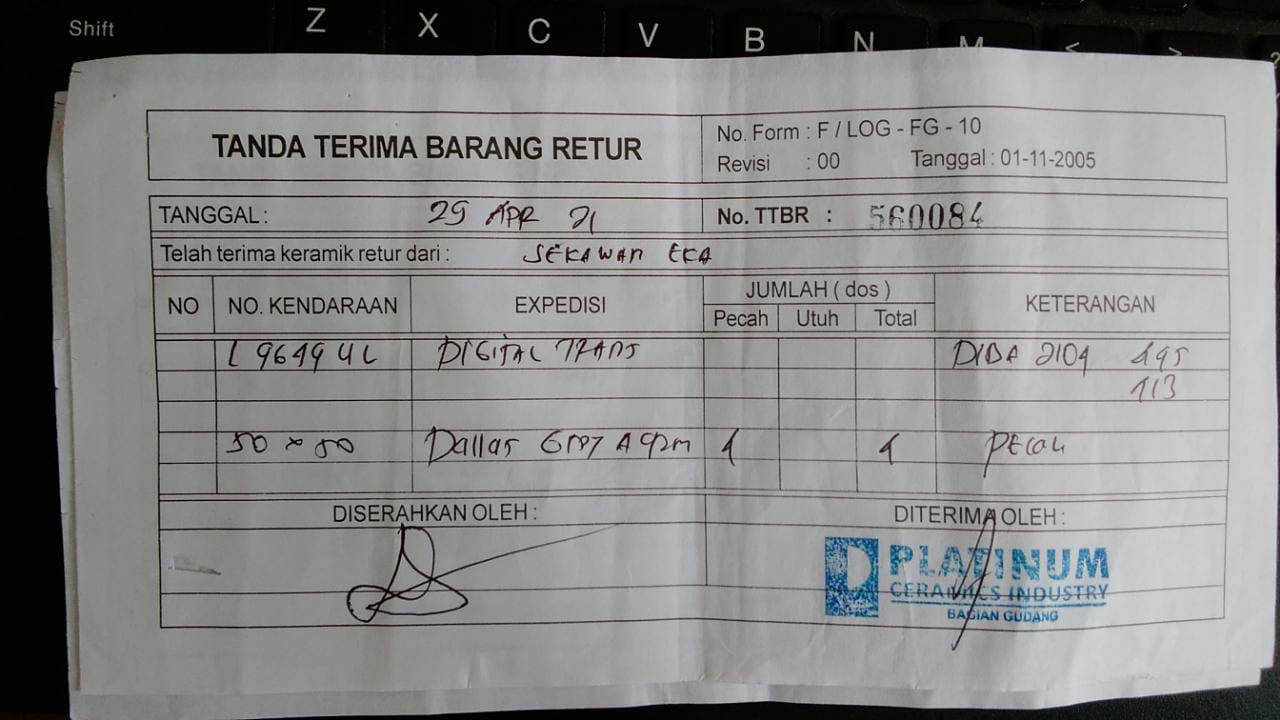 Shift Z X C V B N M < >
TANDA TERIMA BARANG RETUR
No. Form : F / LOG - FG - 10
Revisi : 00 Tanggal : 01-11-2005
TANGGAL : 29 APR 21
No. TTBR : 560084
Telah terima keramik retur dari : SEKAWAN EKA
NO NO. KENDARAAN EXPEDISI JUMLAH ( dos ) KETERANGAN
Pecah Utuh Total
L 9649 UL DIGITAL TRANS DIDA 2104 495
113
50 x 50 Dallas GREY A 1 1 PECAH
DISERAHKAN OLEH : DITERIMA OLEH :
PLATINUM
CERAMICS INDUSTRY
BAGIAN GUDANG